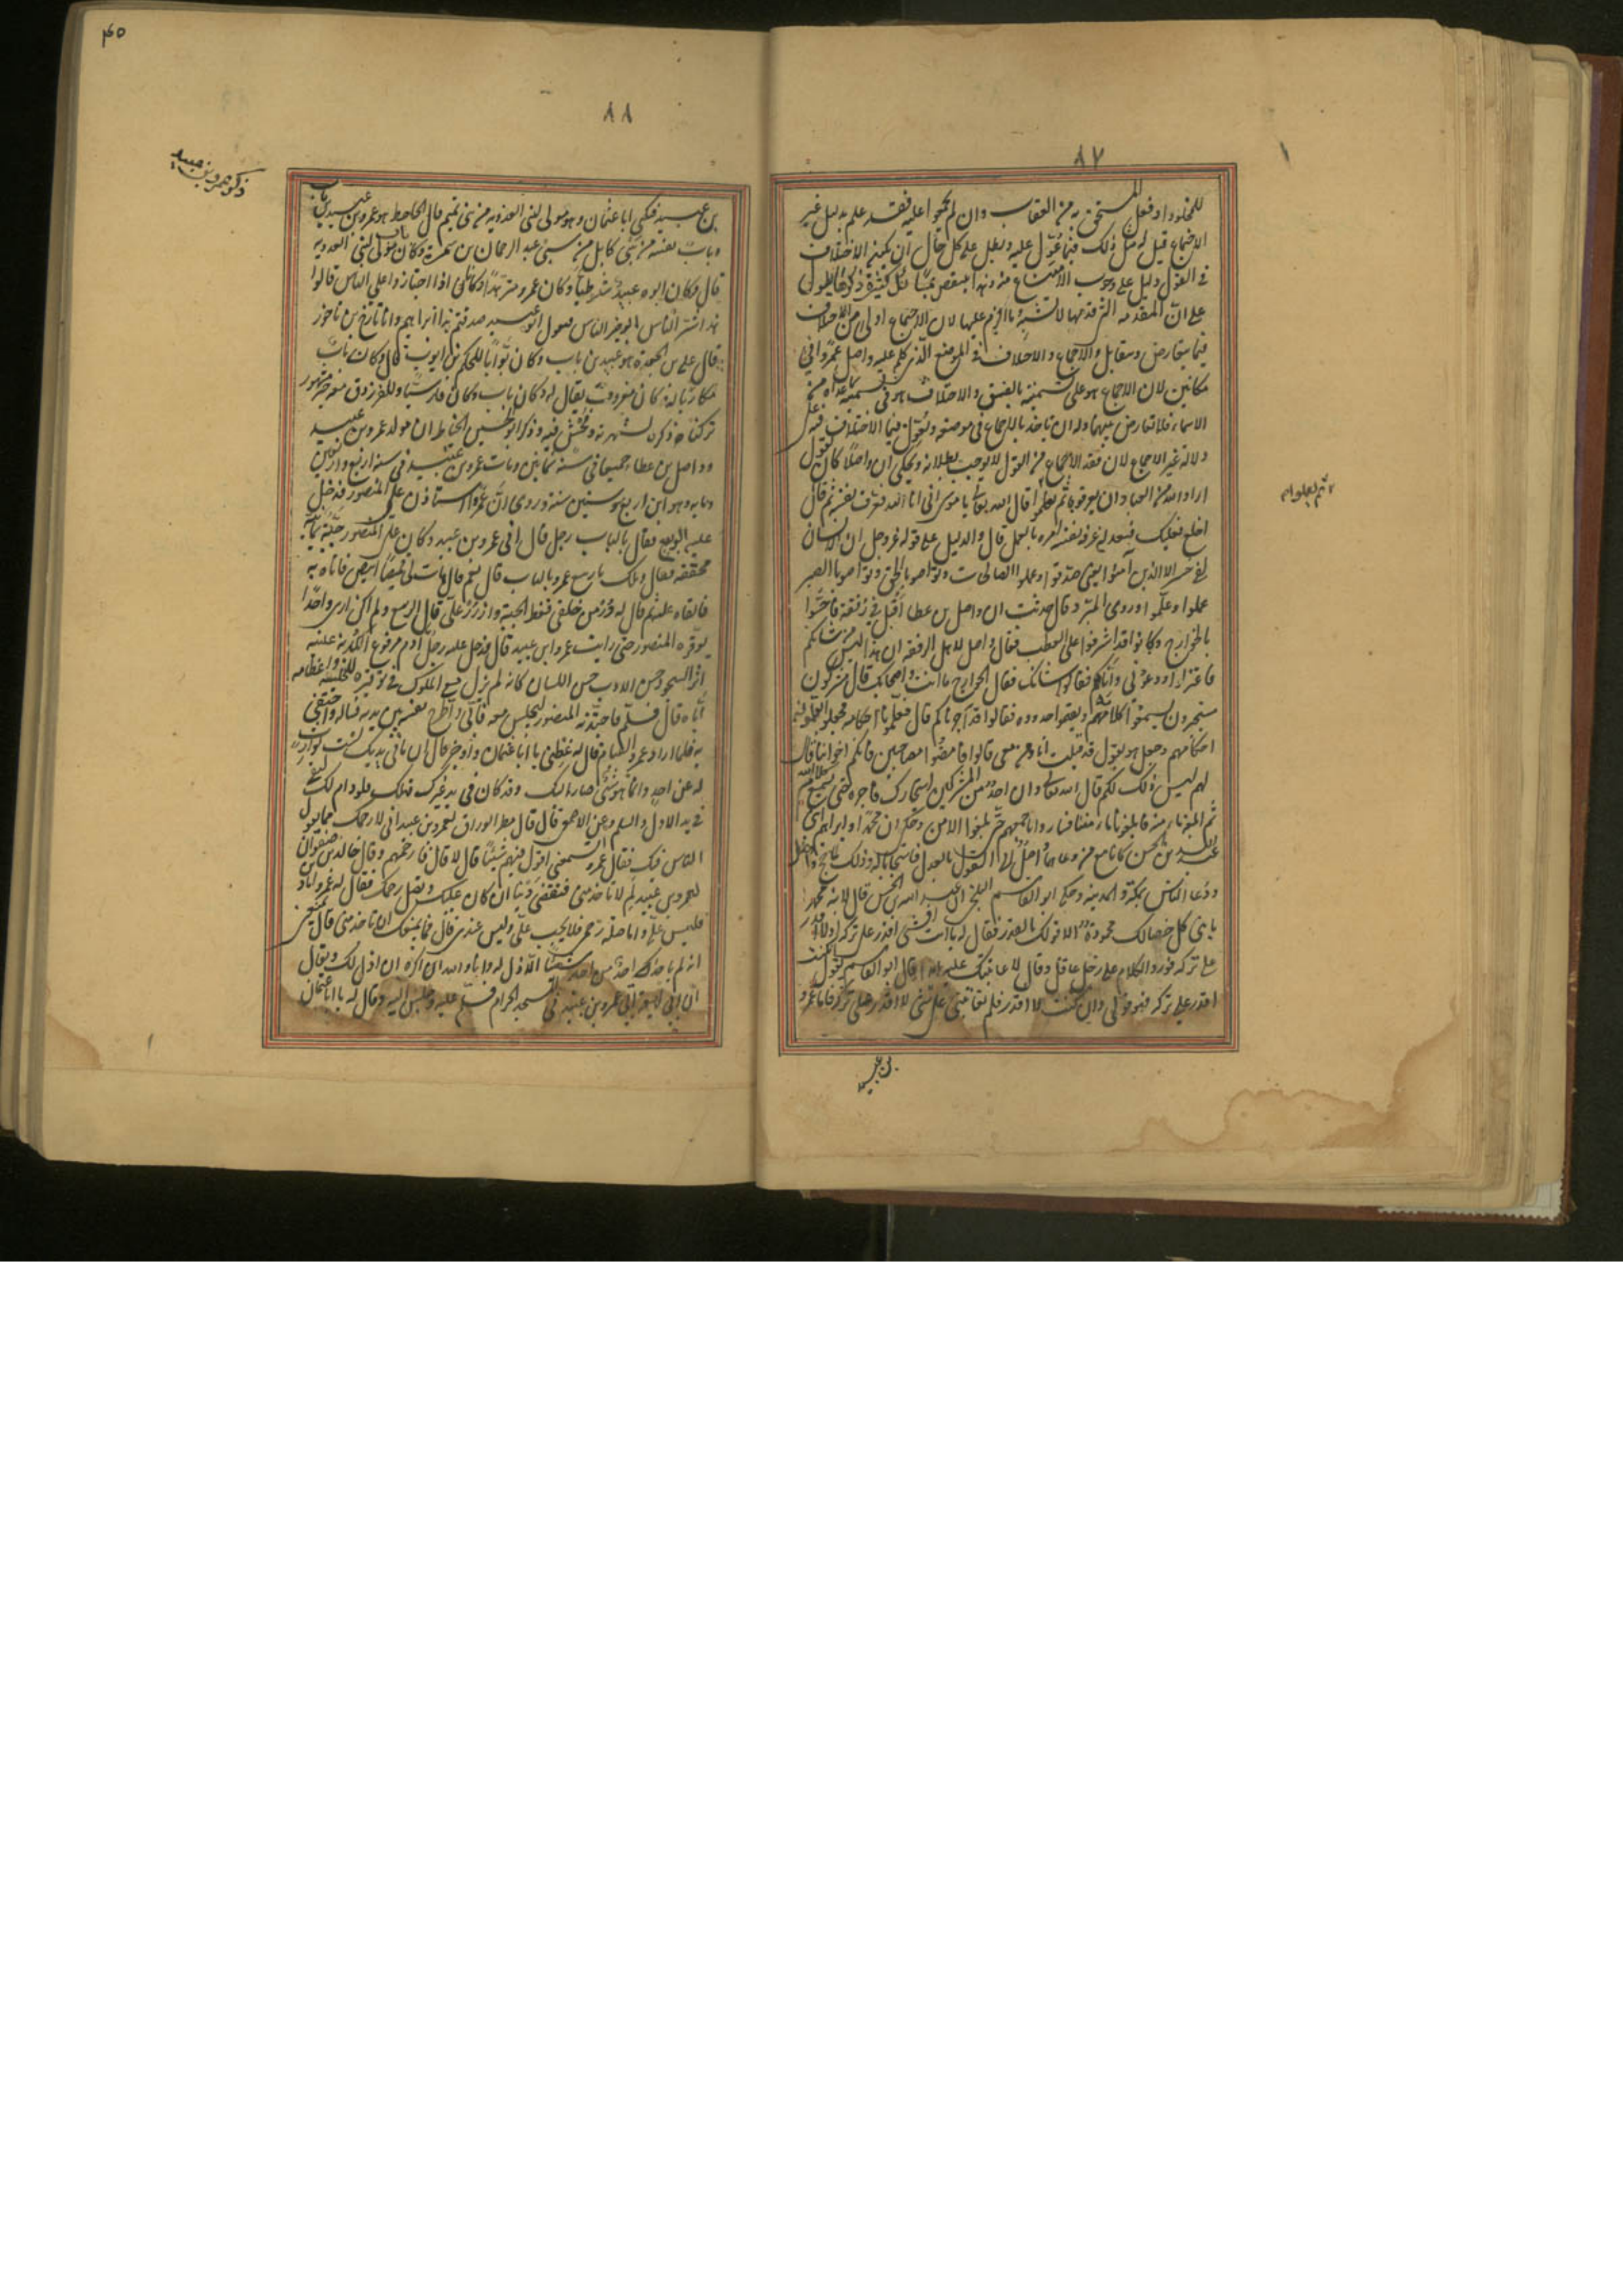 ٨٧
للخلود او فعل المستحق به من العقاب وان لم يجمعوا عليه فقد علم بدليل غير
الاجماع قيل له مثل ذلك فيما عول عليه وبطل على كل حال ان يكون الاختلاف
في القول دليل على وجوب الامتناع منه وهذا ينتقض بمسائل كثيرة ذكرها يطول
على ان المقدمة التي قدمها لا تشبه ما الزم عليها لان الاجماع اولى من الاختلاف
فيما يتعارض ويتقابل والاجماع والاختلاف في الموضع الذي كلم عليه واصل عمروا في
مكانين لان الاجماع هو على تسميته بالفسق والاختلاف هو في تسميته بما عداه من
الاسماء فلا تعارض بينهما وله ان ياخذ بالاجماع في موضعه ويعول فيما الاختلاف فيه على
دلالة غير الاجماع لان فقد الاجماع من القول لا يوجب بطلانه ويحكى ان واصلا كان يقول
اراد الله من العباد ان يعرفوه ثم يعلموا قال الله تعالى يا موسى اني انا الله فعرفه نفسه ثم قال
اخلع نعليك فبعد ان عرفه نفسه امره بالعمل قال والدليل على قوله عز وجل ان الانسان
لفي خسر الا الذين آمنوا يعني صدقوا وعملوا الصالحات وتواصوا بالحق وتواصوا بالصبر
عملوا وعلموا وروى المبرد قال حدثت ان واصل بن عطا اقبل في رفقة فاحسوا
بالخوارج وكانوا قد اشرفوا على العطب فقال واصل لاهل الرفقة ان هذا ليس من شانكم
فاعتزلوا ودعوني واياهم فقالوا شانك فقال الخوارج ما انت واصحابك قال مشركون
مستجيرون ليسمعوا كلام الله ويفهموا حدوده فقالوا قد اجرناكم قال فعلمونا احكامه فجعلوا يعلمونهم
احكامهم وجعل هو يقول قد قبلت انا ومن معي قالوا فامضوا مصاحبين فانكم اخواننا قال
لهم ليس ذلك لكم قال الله تعالى وان احد من المشركين استجارك فاجره حتى يسمع كلام الله
ثم ابلغه مامنه فابلغونا مامننا فساروا باجمعهم حتى بلغوا الامن وحكي ان محمدا وابراهيم ابني
عبد الله بن الحسن كانا ممن دعاهما واصل الى القول بالعدل فاستجابا له وذلك لما حج واصل
ودعا الناس بمكة والمدينة وحكى ابو القاسم البلخي ان عبد الله بن الحسن قال لابنه محمد
يا بني كل خصالك محمودة الا قولك بالقدر فقال له يا ابت افشيء اقدر على تركه او لا اقدر
على تركه فورد الكلام على رجل عاقل وقال لا عاتبتك عليه ابدا قال ابو القاسم يقول ان كنت
اقدر على تركه فهو قولي وان كنت لا اقدر فلم تعاتبني على شيء لا اقدر على تركه فاما عمرو
بن عبيد
ثم يعلموا
٨٨
٤٥
ذكر عمرو بن عبيد
بن عبيد فيكنى ابا عثمان وهو مولى لبني العدوية من بني تميم قال الجاحظ هو عمرو بن عبيد بن باب
وباب نفسه من سبي كابل من سبي عبد الرحمان بن سمرة وكان باب مولى لبني العدوية
قال وكان ابوه عبيد شرطيا وكان عمرو متزهدا وكانا اذا اجتازا معا على الناس قالوا
هذا شر الناس ابو خير الناس فيقول عبيد صدقتم هذا ابراهيم وانا تارخ بن ناخور
قال علي بن الجعد هو عبيد بن باب وكان بوابا للحكم بن ايوب قال وكان باب
مكاريا له دكان معروف يقال له دكان باب وكان فارسيا وللفرزدق معه خبر مشهور
تركنا ذكره لشهرته وفحش فيه وذكر ابو الحسين الخياط ان مولد عمرو بن عبيد
وواصل بن عطاء جميعا في سنة ثمانين ومات عمرو بن عبيد في سنة اربع واربعين
ومايه وهو ابن اربع وستين سنة وروى ان عمروا استاذن على المنصور فدخل
عليه الربيع فقال بالباب رجل قال اني عمرو بن عبيد وكان على المنصور جبة يمانية
محققة فقال ويلك يا ربيع عمرو بالباب قال نعم قال هات لي قميصا ابيض فاتاه به
فالقاه عليه ثم قال له زره من خلفي فغط الجبة وازرر علي قال الربيع ولم اكن ارى واحدا
يوقره المنصور حتى رايت عمرو بن عبيد قال فدخل عليه رجل آدم مرفوع الكدنة عليه
اثر السجود حسن الادب حسن اللسان كانه لم يزل مع الملوك في توقيره للخليفة واعظامه
اياه قال فسلم فاجتذبه المنصور ليجلس معه فابى وطرح نفسه بين يديه فساله واحتفى
به فلما اراد عمرو القيام قال له عظني يا ابا عثمان واوجز قال ان ما في يديك لست بوارثه
له عن احد وانما هو شيء صار اليك وقد كان في يد غيرك قبلك فلو دام لك لبقي
في يد الاول والسلم وعن الاصمعي قال قال مطر الوراق لعمرو بن عبيد اني لارحمك مما يقول
الناس فيك فقال عمرو اتسمعني اقول فيهم شيئا قال لا قال فارحمهم وقال خالد بن صفوان
لعمرو بن عبيد لم لا تاخذ مني فتقضي دينا ان كان عليك وتصل رحمك فقال له عمرو اما دين
فليس علي واما صلة رحم فلا يجب علي وليس عندي قال فما يمنعك ان تاخذ مني قال يمنعني
انه لم ياخذ احد من احد شيئا الا ذل له وانا والله اكره ان اذل لك ويقال
ان ابن لهيعة اتى عمرو بن عبيد في المسجد الحرام فسلم عليه وجلس اليه وقال له يا ابا عثمان